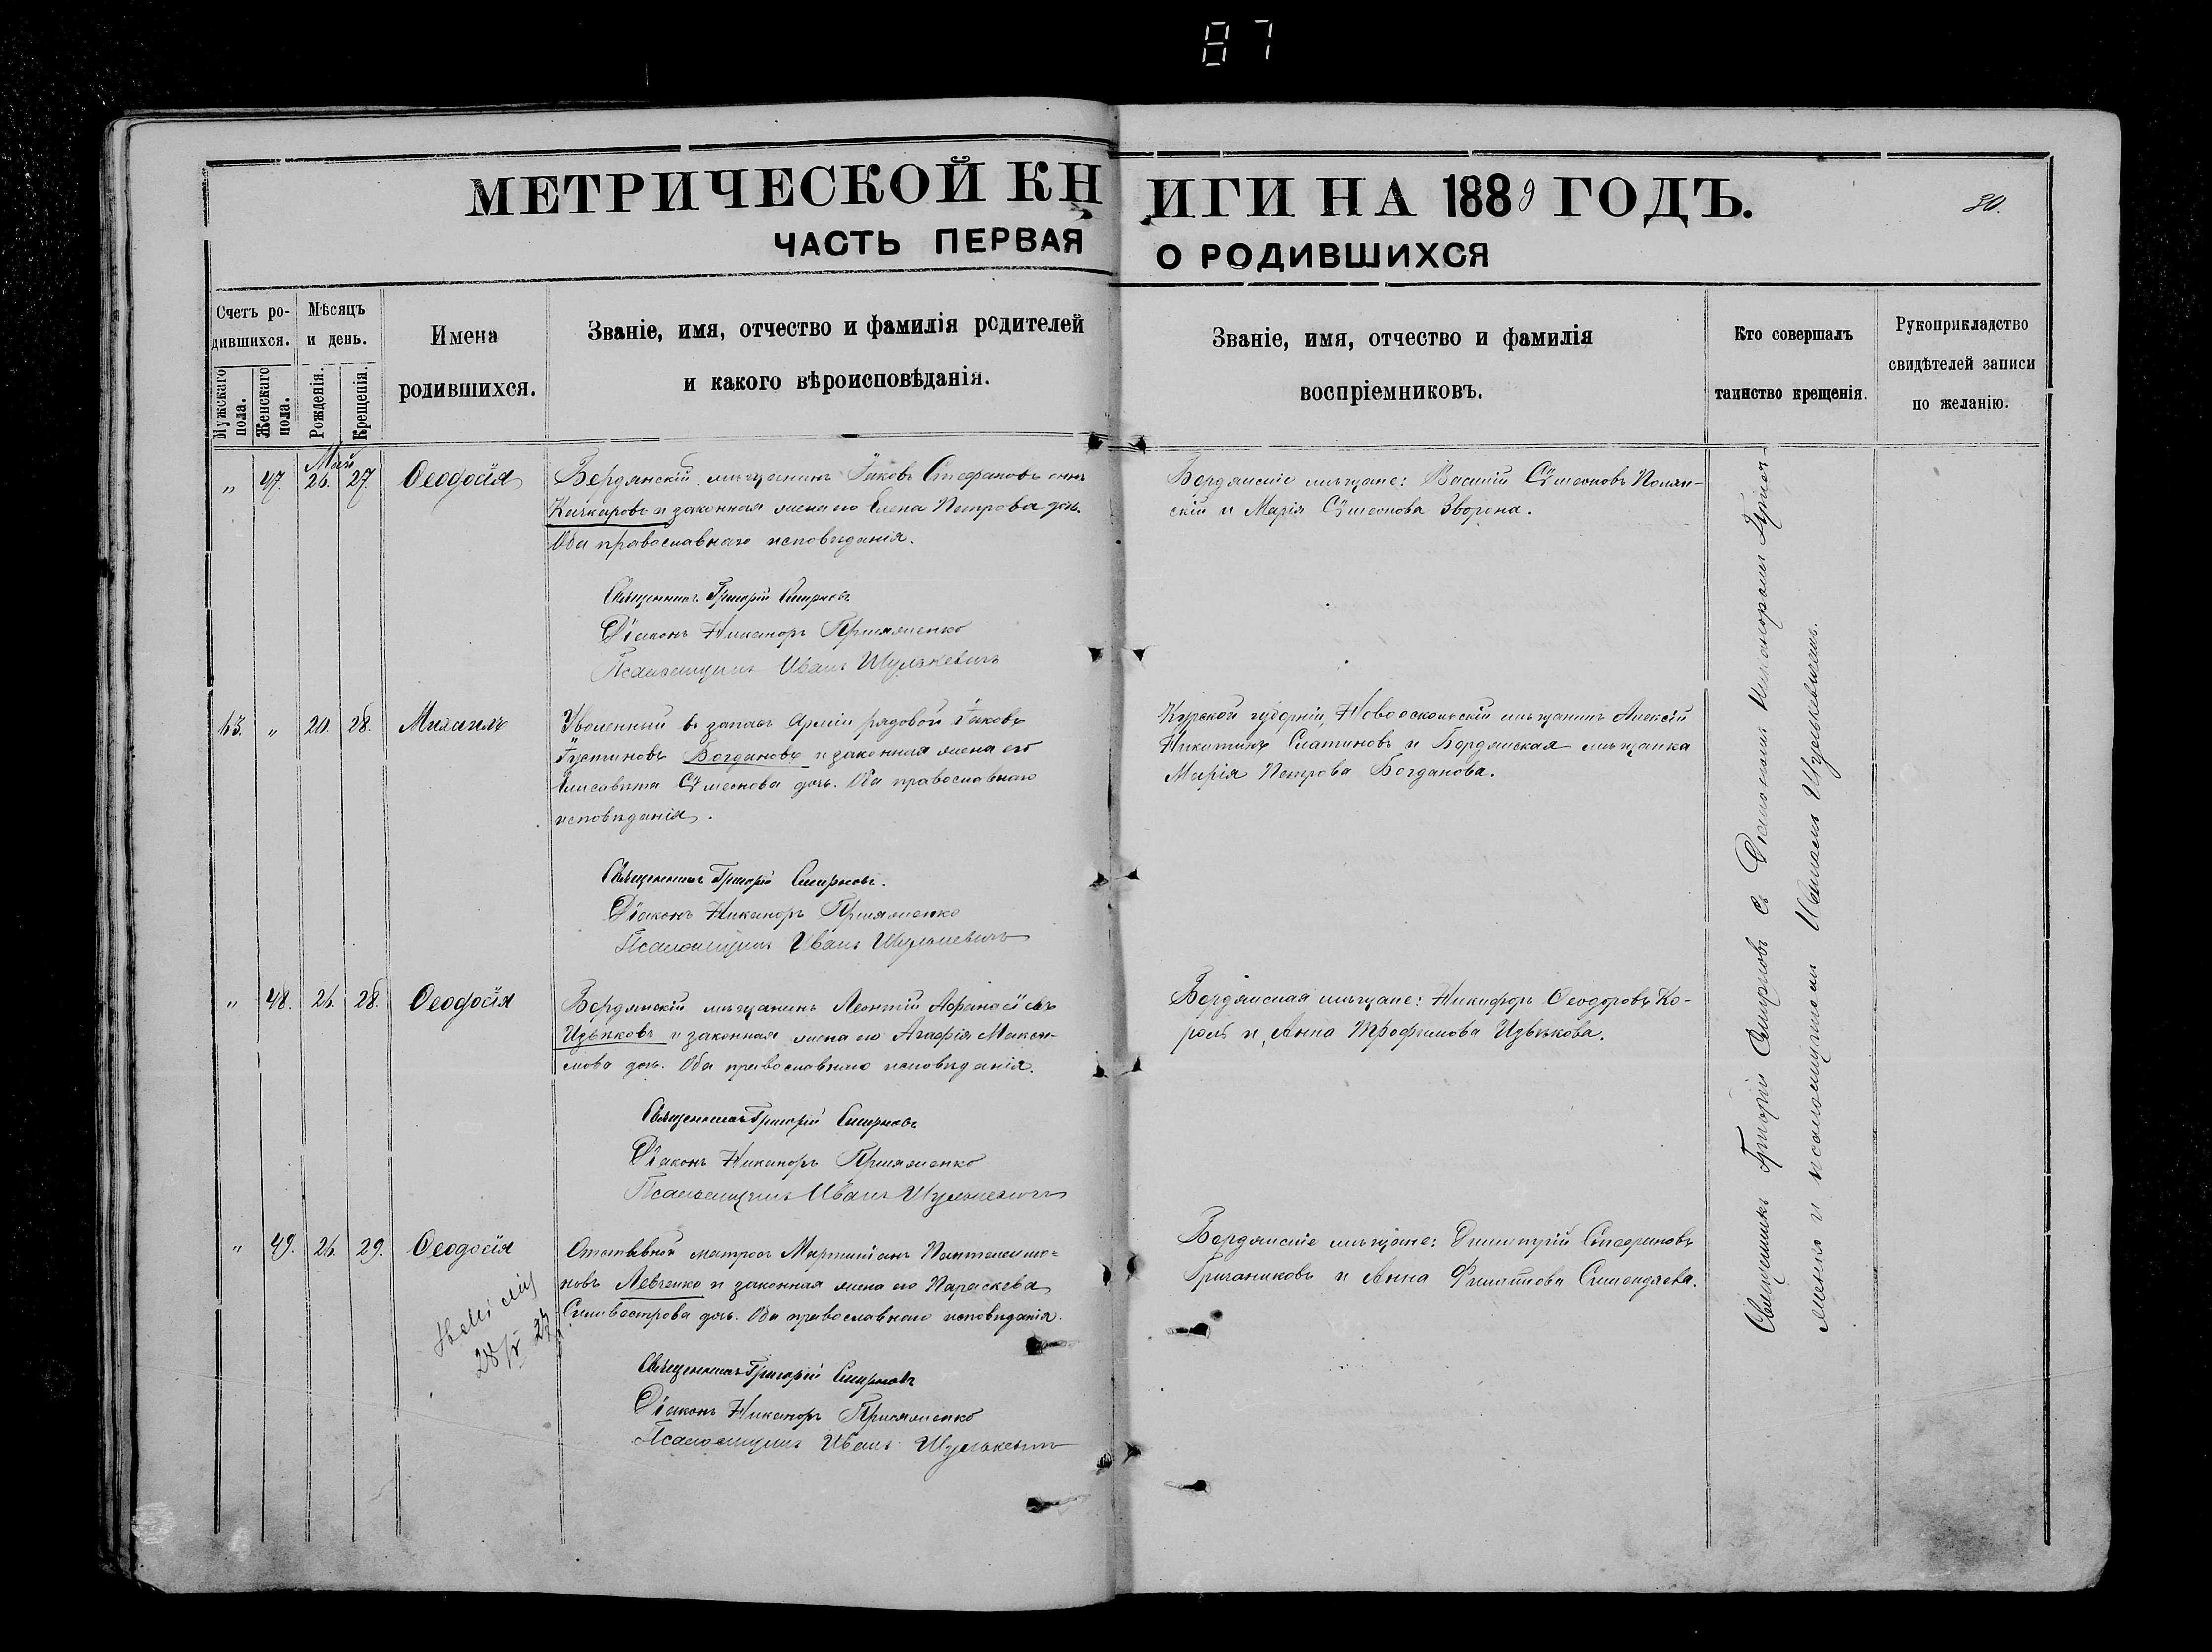 87
МЕТРИЧЕСКОЙ КНИГИ НА 1889 ГОДЪ.
30.
ЧАСТЬ ПЕРВАЯ О РОДИВШИХСЯ
Счетъ родившихся.
Мужскаго пола.
Женскаго пола.
Мѣсяцъ и день.
Рожденія.
Крещенія.
Имена
родившихся.
Званіе, имя, отчество и фамилія родителей
и какого вѣроисповѣданія.
Званіе, имя, отчество и фамилія
воспріемниковъ.
Кто совершалъ
таинство крещенія.
Рукоприкладство
свидѣтелей записи
по желанію.
Май
„ 47. 26. 27. Ѳеодосія
Бердянскій мѣщанинъ Іаковъ Стефановъ сынъ
и законная жена его Елена Петрова дочь.
Оба православнаго исповѣданія.
Священникъ Григорій Смирновъ
Діаконъ Никаноръ
Псаломщикъ Иванъ Шулькевичъ
Бердянскіе мѣщане: Василій Сѵмеоновъ Полян-
скій и Марія Сѵмеонова
„ 20. 28. Михаилъ
Уволенный въ запасъ Арміи рядовой Іаковъ
Іустиновъ Богдановъ и законная жена его
Елисавета Сѵмеонова дочь. Оба православнаго
исповѣданія.
Священникъ Григорій Смирновъ.
Діаконъ Никаноръ
Псаломщикъ Иванъ Шулькевичъ
Курской губерніи, Новооскольскій мѣщанинъ Алексій
Никитинъ и Бердянская мѣщанка
Марія Петрова Богданова.
„ 48. 28. Ѳеодосія
Бердянскій мѣщанинъ Леонтій Аѳанасіевъ
Извѣковъ и законная жена его Агафія Макси-
мова дочь. Оба православнаго исповѣданія.
Священникъ Григорій Смирновъ
Діаконъ Никаноръ
Псаломщикъ Иванъ Шулькевичъ
мѣщане: Никифоръ Ѳеодоровъ Ко-
роль и Анна Трофимова Извѣкова.
„ 49. 29. Ѳеодосія
Отставной матросъ Мартиніанъ Пантелеимо-
новъ Левченко и законная жена его Параскева
Сильвестрова дочь. Оба православнаго исповѣданія.
Священникъ Григорій Смирновъ
Діаконъ Никаноръ
Псаломщикъ Иванъ Шулькевичъ
Бердянскіе мѣщане: Димитрій Стефановъ
и Анна Филиппова
Священникъ Григорій Смирновъ съ Діакономъ Никаноромъ
и псаломщикомъ Иваномъ Шулькевичемъ.